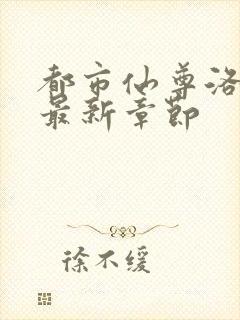 都市仙尊洛
最新章节
徐不缓